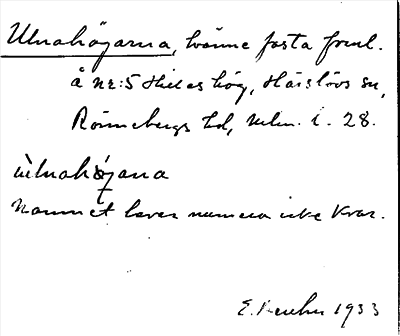 Ulnahögarna, tvänne fasta fornl.
å nr:5 Hildeshög, Härslövs sn,
Rönnebergs hd, Mlm. l. 28.
ùlnahǿjana
Namnet lever numera icke kvar.
E. 1933